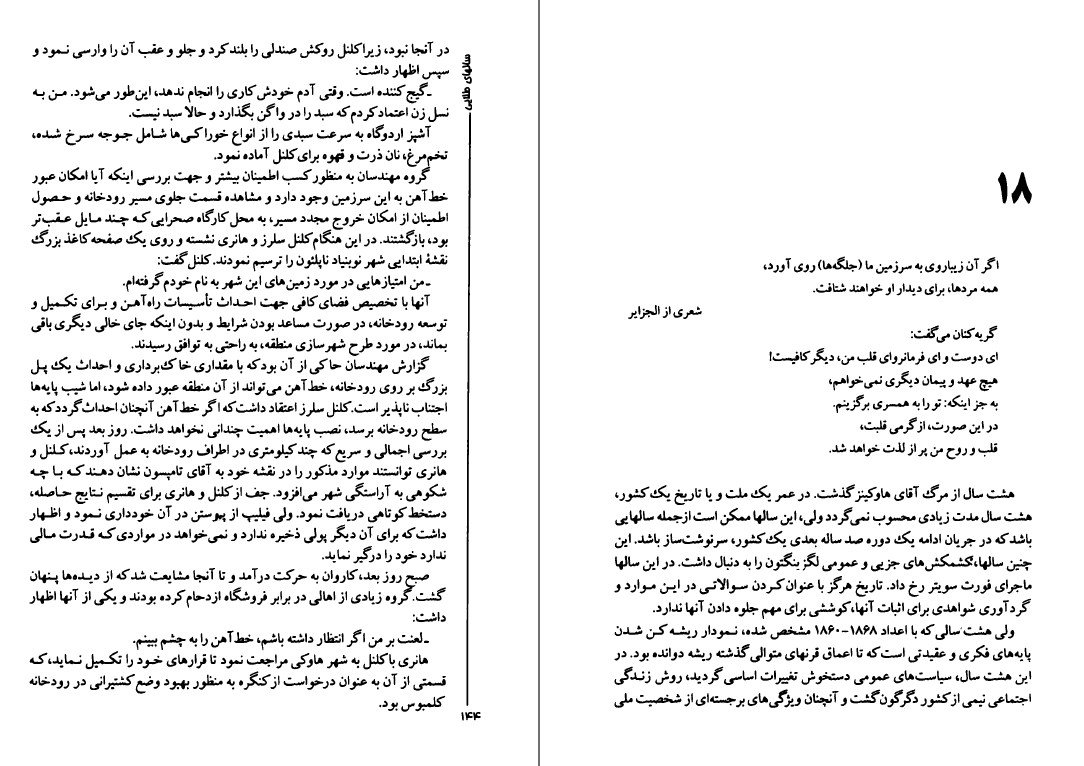 سالهای طلایی
در آنجا نبود، زیرا کلنل روکش صندلی را بلند کرد و جلو و عقب آن را وارسی نمود و
سپس اظهار داشت:
ـ گیج کننده است. وقتی آدم خودش کاری را انجام ندهد، این‌طور می‌شود. من به
نسل زن اعتماد کردم که سبد را در واگن بگذارد و حالا سبد نیست.
آشپز اردوگاه به سرعت سبدی را از انواع خوراکی‌ها شامل جوجه سرخ شده،
تخم‌مرغ، نان ذرت و قهوه برای کلنل آماده نمود.
گروه مهندسان به منظور کسب اطمینان بیشتر و جهت بررسی اینکه آیا امکان عبور
خط آهن به این سرزمین وجود دارد و مشاهده قسمت جلوی مسیر رودخانه و حصول
اطمینان از امکان خروج مجدد مسیر، به محل کارگاه صحرایی که چند مایل عقب‌تر
بود، بازگشتند. در این هنگام کلنل سلرز و هانری نشسته و روی یک صفحه کاغذ بزرگ
نقشهٔ ابتدایی شهر نوبنیاد ناپلئون را ترسیم نمودند. کلنل گفت:
ـ من امتیازهایی در مورد زمین‌های این شهر به نام خودم گرفته‌ام.
آنها با تخصیص فضای کافی جهت احداث تأسیسات راه‌آهن و برای تکمیل و
توسعه رودخانه، در صورت مساعد بودن شرایط و بدون اینکه جای خالی دیگری باقی
بماند، در مورد طرح شهرسازی منطقه، به راحتی به توافق رسیدند.
گزارش مهندسان حاکی از آن بود که با مقداری خاک‌برداری و احداث یک پل
بزرگ بر روی رودخانه، خط آهن می‌تواند از آن منطقه عبور داده شود، اما شیب پایه‌ها
اجتناب ناپذیر است. کلنل سلرز اعتقاد داشت که اگر خط آهن آنچنان احداث گردد که به
سطح رودخانه برسد، نصب پایه‌ها اهمیت چندانی نخواهد داشت. روز بعد پس از یک
بررسی اجمالی و سریع که چند کیلومتری در اطراف رودخانه به عمل آوردند، کلنل و
هانری توانستند موارد مذکور را در نقشه خود به آقای تامپسون نشان دهند که با چه
شکوهی به آراستگی شهر می‌افزود. جف از کلنل و هانری برای تقسیم نتایج حاصله،
دستخط کوتاهی دریافت نمود. ولی فیلیپ از پیوستن در آن خودداری نمود و اظهار
داشت که برای آن دیگر پولی ذخیره ندارد و نمی‌خواهد در مواردی که قدرت مالی
ندارد خود را درگیر نماید.
صبح روز بعد، کاروان به حرکت درآمد و تا آنجا مشایعت شد که از دیده‌ها پنهان
گشت. گروه زیادی از اهالی در برابر فروشگاه ازدحام کرده بودند و یکی از آنها اظهار
داشت:
ـ لعنت بر من اگر انتظار داشته باشم، خط آهن را به چشم ببینم.
هانری با کلنل به شهر هاوکی مراجعت نمود تا قرارهای خود را تکمیل نماید، که
قسمتی از آن به عنوان درخواست از کنگره به منظور بهبود وضع کشتیرانی در رودخانه
کلمبوس بود.
۱۴۴
۱۸
اگر آن زیباروی به سرزمین ما (جلگه‌ها) روی آورد،
همه مردها، برای دیدار او خواهند شتافت.
شعری از الجزایر
گریه‌کنان می‌گفت:
ای دوست و ای فرمانروای قلب من، دیگر کافیست!
هیچ عهد و پیمان دیگری نمی‌خواهم،
به جز اینکه: تو را به همسری برگزینم.
در این صورت، از گرمی قلبت،
قلب و روح من پر از لذت خواهد شد.
هشت سال از مرگ آقای هاوکینز گذشت. در عمر یک ملت و یا تاریخ یک کشور،
هشت سال مدت زیادی محسوب نمی‌گردد ولی، این سالها ممکن است از جمله سالهایی
باشد که در جریان ادامه یک دوره صد ساله بعدی یک کشور، سرنوشت‌ساز باشد. این
چنین سالها، گشمکش‌های جزیی و عمومی لگز بنگتون را به دنبال داشت. در این سالها
ماجرای فورت سویتر رخ داد. تاریخ هرگز با عنوان کردن سوالاتی در این موارد و
گردآوری شواهدی برای اثبات آنها، کوششی برای مهم جلوه دادن آنها ندارد.
ولی هشت سالی که با اعداد ۱۸۶۸-۱۸۶۰ مشخص شده، نمودار ریشه کن شدن
پایه‌های فکری و عقیدتی است که تا اعماق قرنهای متوالی گذشته ریشه دوانده بود. در
این هشت سال، سیاست‌های عمومی دستخوش تغییرات اساسی گردید، روش زندگی
اجتماعی نیمی از کشور دگرگون گشت و آنچنان ویژگی‌های برجسته‌ای از شخصیت ملی